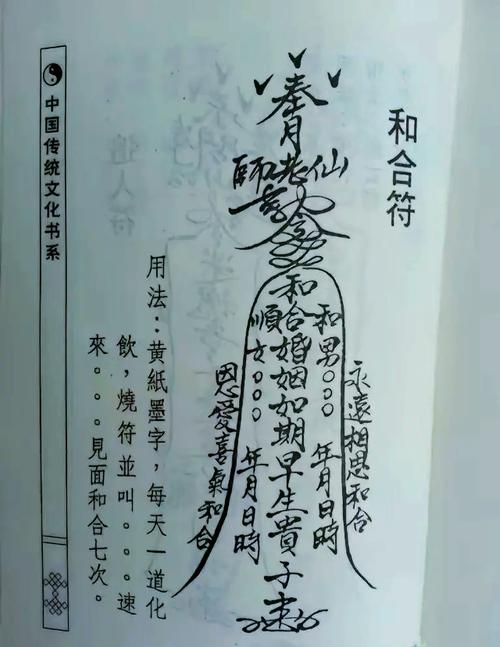 和合符
奉月老仙師
令
和合婚姻如期早生貴子
和男○○○ 年月日時
順女○○○ 年月日時
永遠相思和合
恩愛喜氣和合
用法：黄紙墨字，每天一道化
飲，燒符並叫。。。速
來。。。見面和合七次。
中国传统文化书系